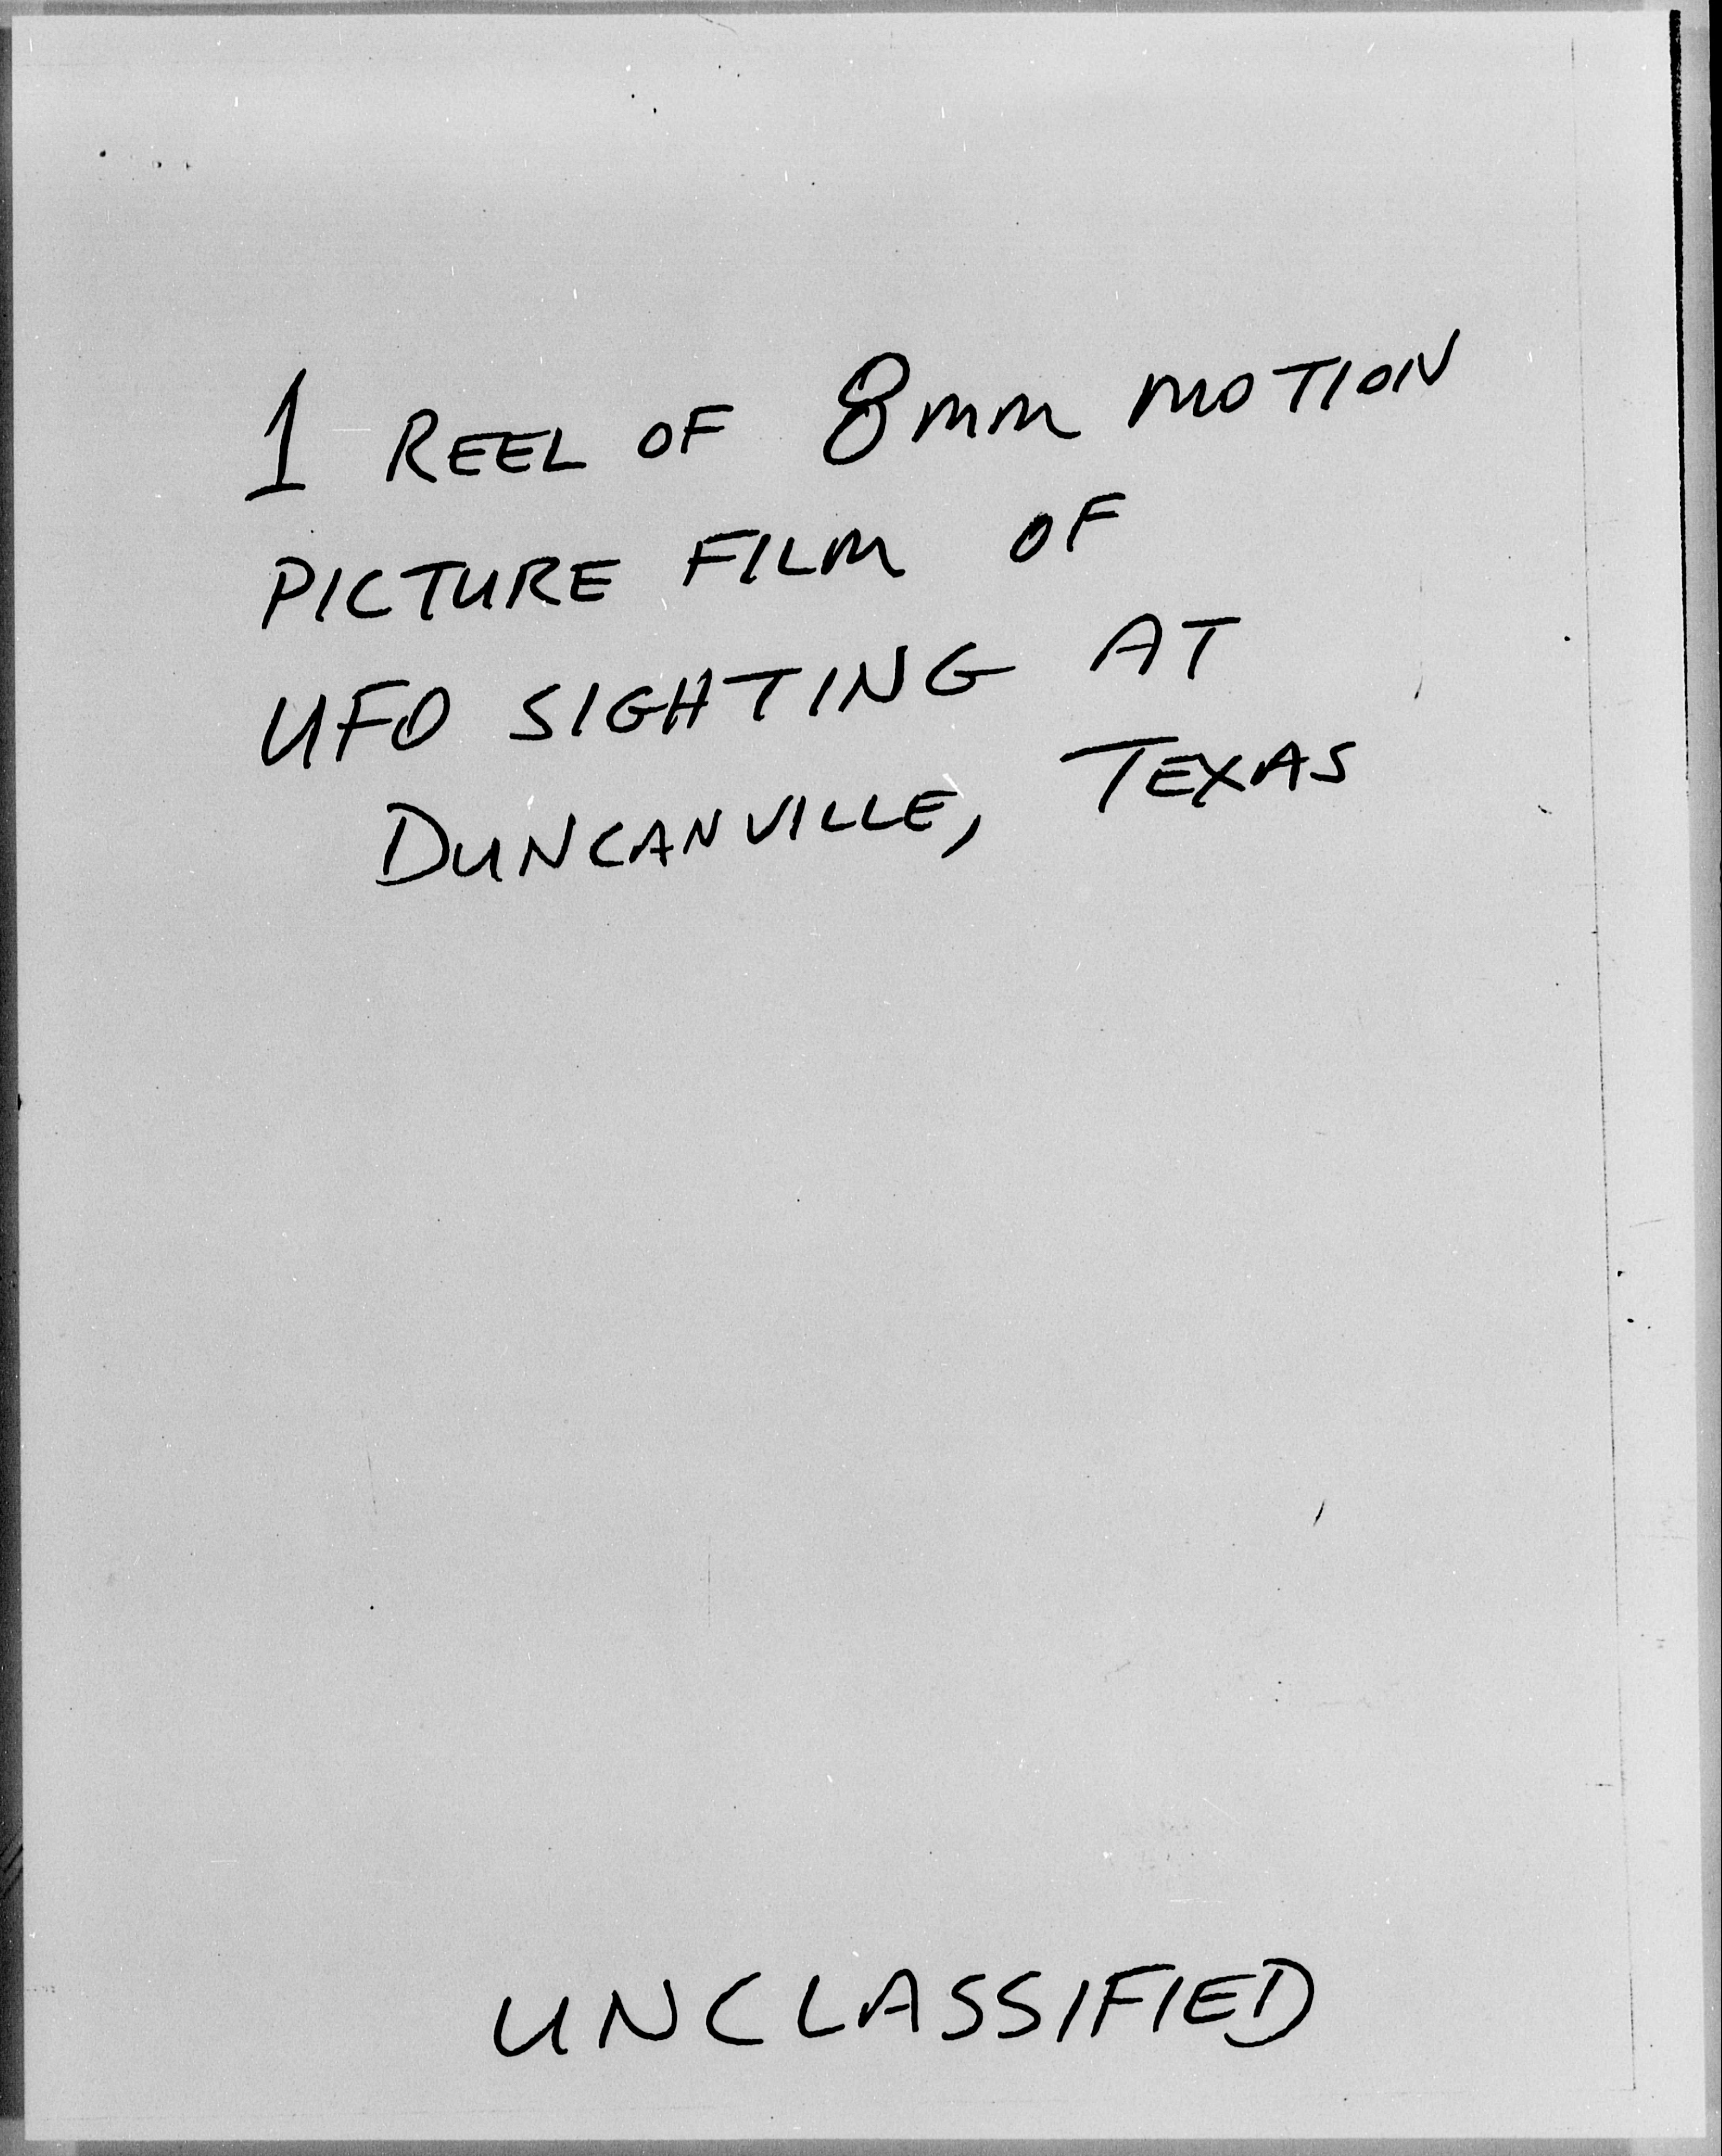 1 REEL OF 8mm MOTION
PICTURE FILM OF
UFO SIGHTING AT
DUNCANVILLE, TEXAS
UNCLASSIFIED